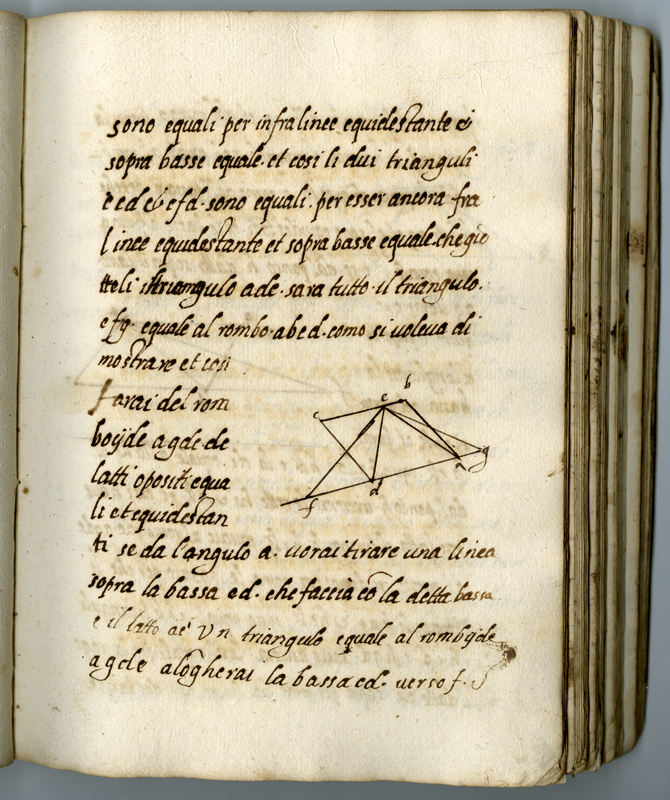 sono equali per infra linee equidestante &
sopra basse equale. et cosi li dui trianguli
e e d & e f d. sono equali. per esser ancora fra
linee equidestante et sopra basse equale. che gio
triangulo a d e. sara tutto il triangulo.
e f g. equale al rombo. a b e d. como si voleva di
mostrare et cosi
farai del rom
boÿde a g d e. de
latti opositi equa
li et equidestan
ti se da l'angulo a. vorai tirare una linea
sopra la bassa e d. che faccia cō la detta bassa
e il latto ae Vn triangulo equale al rombÿde
a g d e alōgherai la bassa e d. verso f.
c e b
g
a
d
f